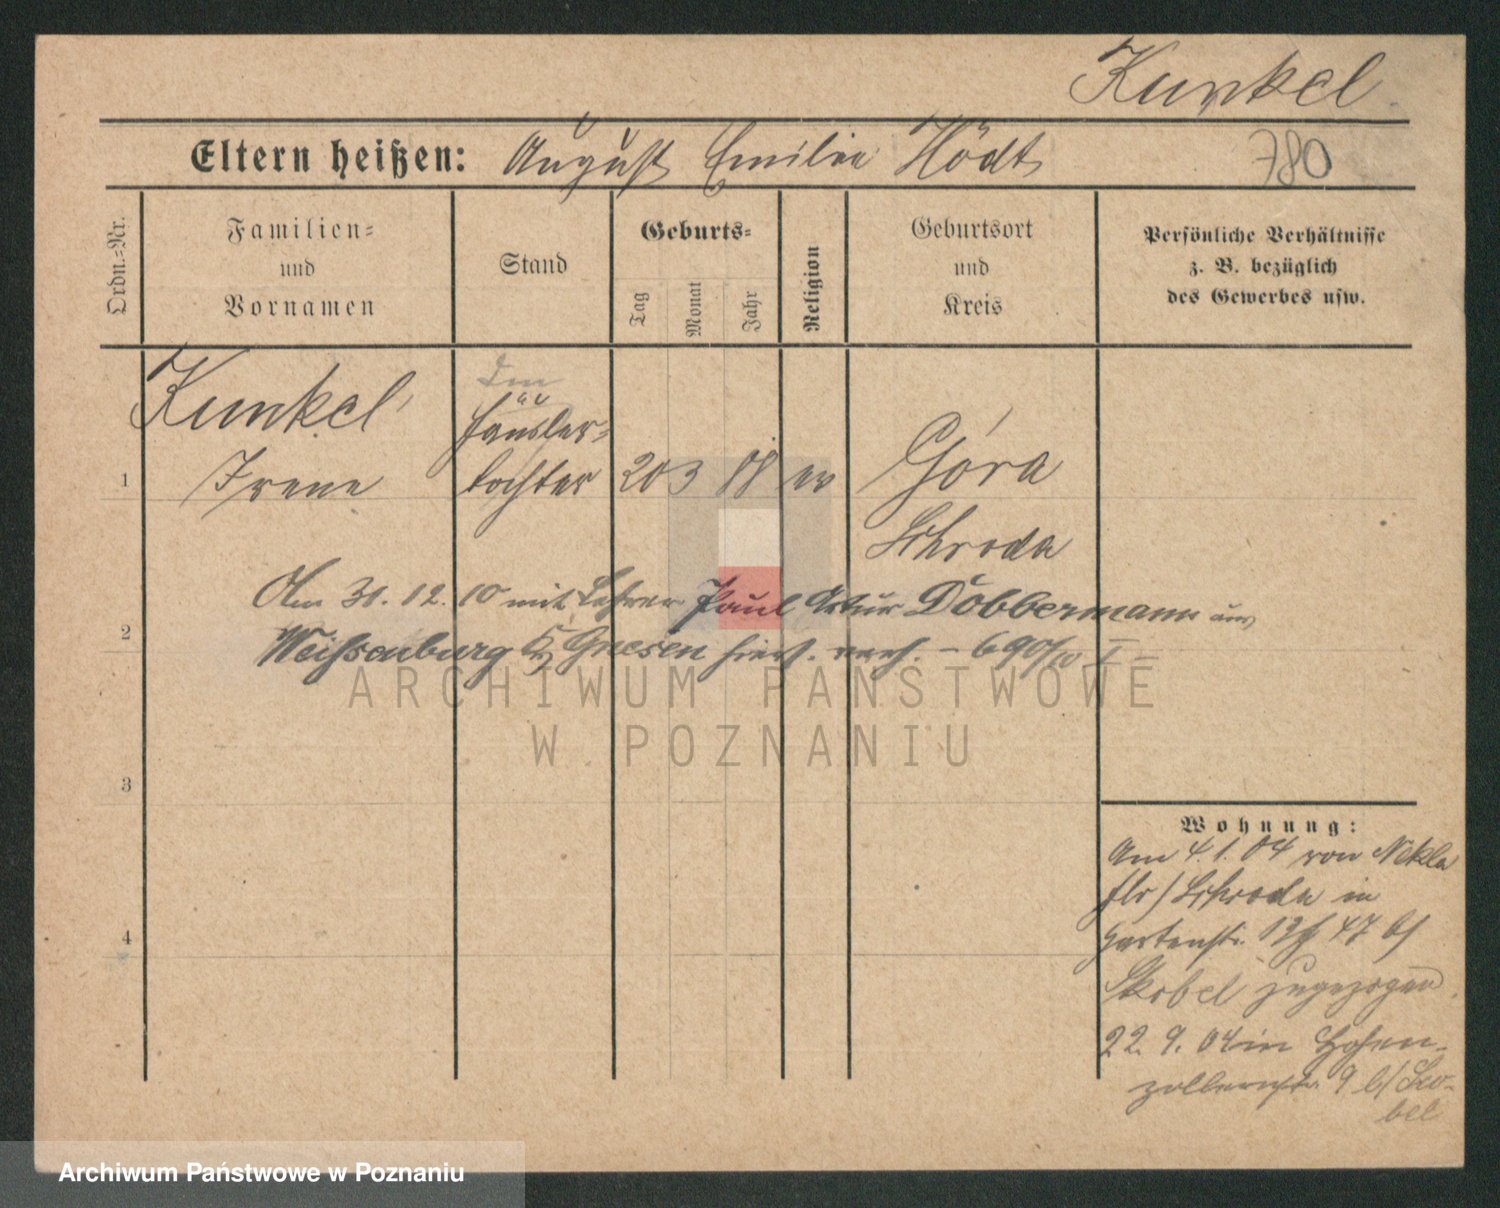 Kunkel
Eltern heißen: August Emilie Hödt
780
Ordn.=Nr.
Familien=
und
Vornamen
Stand
Geburts=
Tag
Monat
Jahr
Religion
Geburtsort
und
Kreis
Persönliche Verhältnisse
z. B. bezüglich
des Gewerbes usw.
Kunkel
Häusler=
1 Irene tochter 20 3 88 ev Góra
Schroda
Am 31. 12. 10 mit Lehrer Paul Artur Döbbermann aus
2
Weissenburg Gnesen hier verh. - 690/10 I
ARCHIWUM PAŃSTWOWE
W POZNANIU
3
4
Wohnung:
Am 4. 1. 04 von Nekla
Schroda in
Gartenstr. 47 b/
Skobel zugezogen
22. 9. 04 in Hohen-
zollernstr. 9 b/ Sko-
bel
Archiwum Państwowe w Poznaniu